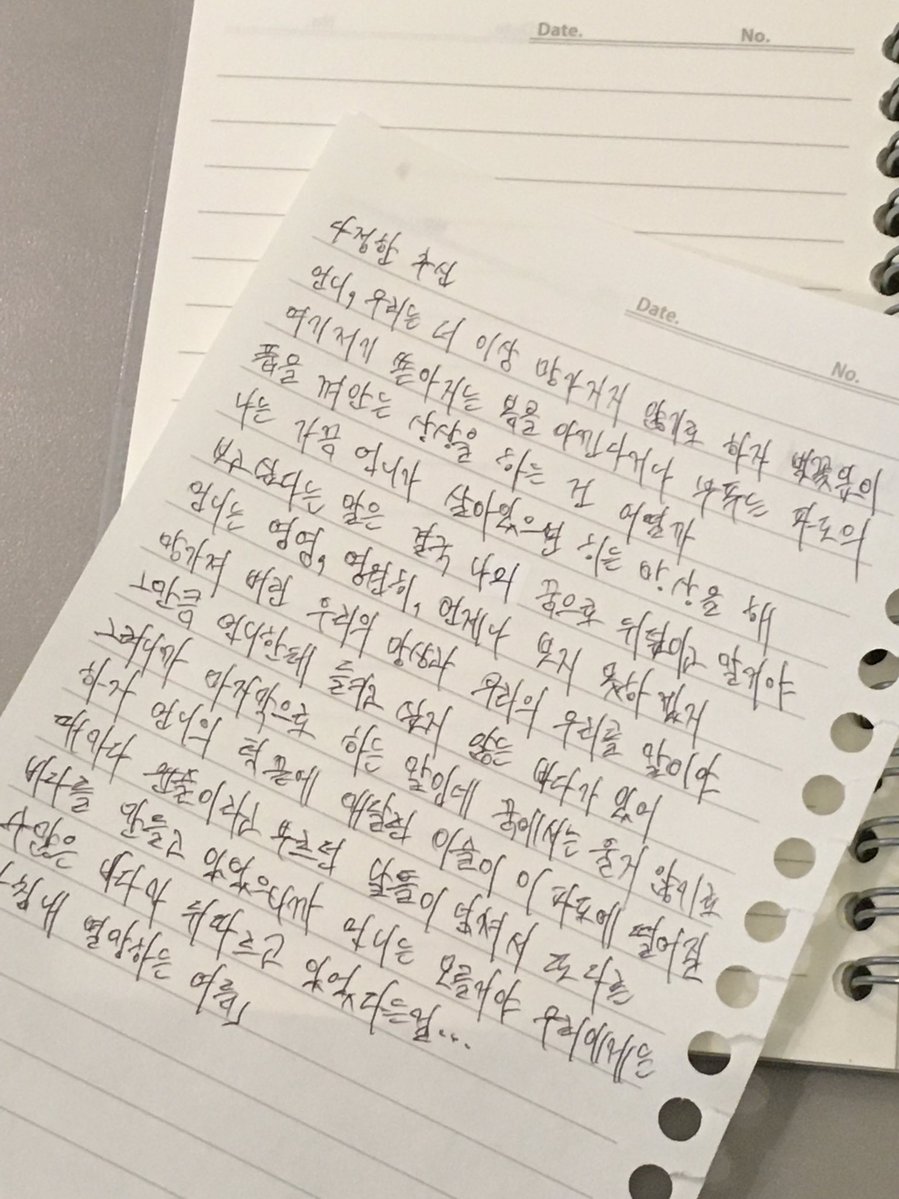 Date.
No.
Date.
No.
다정한 추신
언니, 우리는 더 이상 망가지지 않기로 하자 벚꽃잎이
여기저기 쏟아지는 봄을 아낀다거나 부푸는 파도의
품을 껴안는 상상을 하는 건 어떨까
나는 가끔 언니가 살아있으면 하는 망상을 해
보고 싶다는 말은 결국 나의 꿈으로 뒤덮이고 말거야
언니는 영영, 영원히, 언제나 오지 못하겠지
망가져 버린 우리의 망상과 우리의 우리를 말이야
그만큼 언니한테 들키고 싶지 않은 바다가 있어
그러니까 마지막으로 하는 말인데 꿈에서는 울지 않기로
하자 언니의 턱 끝에 매달린 이슬이 이 파도에 떨어질
때마다 이라고 부르던 날들이 넘쳐서 또 다른
바다를 만들고 있었으니까 언니는 모를거야 우리에게는
수많은 바다가 뒤따르고 있었다는걸...
열망하는 여름」